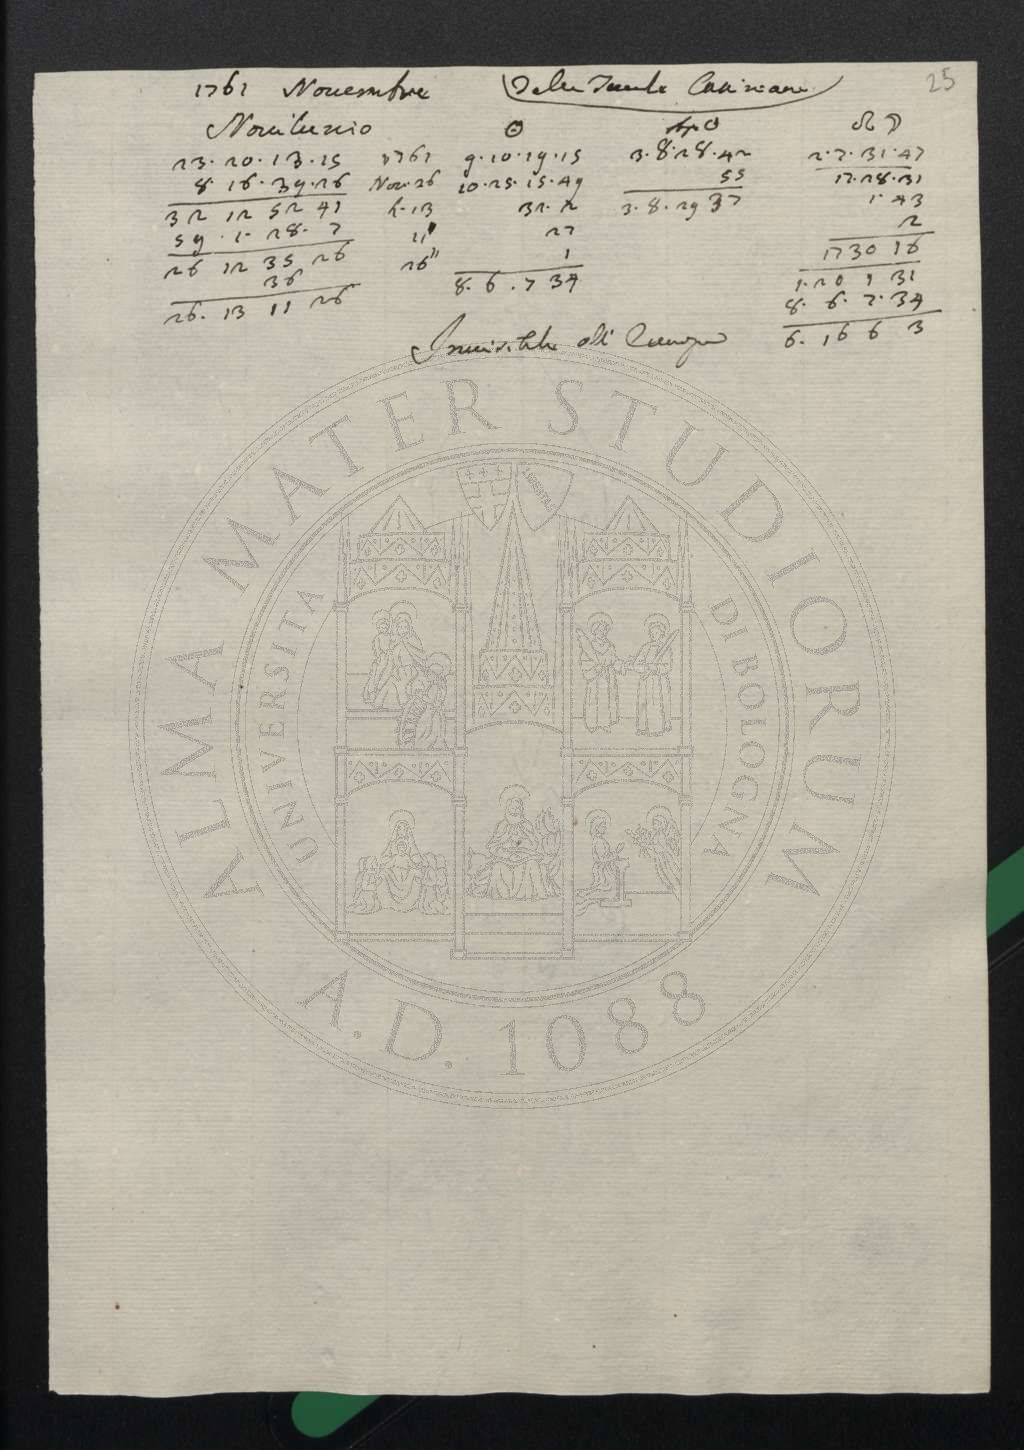 1761 Novembre Dalle Tavole Cassiniane 25
Novilunio ☉ Ap ☉ ☊ ☽
23. 20. 13. 15 1761 9. 10. 19. 15 3. 8. 28. 42 2. 7. 31. 47
8. 16. 39. 26 Nov. 26 10. 25. 15. 49 55 17. 28. 31
32 12 52 41 h. 13 32. 2 3. 8. 29 37 1. 43
59. 1. 28. 7 11' 27 2
26 12 35 26 26'' 1 1730 16
36 8. 6. 7 34 1. 20 1 31
26. 13 11 26 8. 6. 7. 34
Invisibile all' Europa 6. 16 6 3
ALMA MATER STUDIORUM
UNIVERSITA DI BOLOGNA
LIBERTAS
A.D. 1088